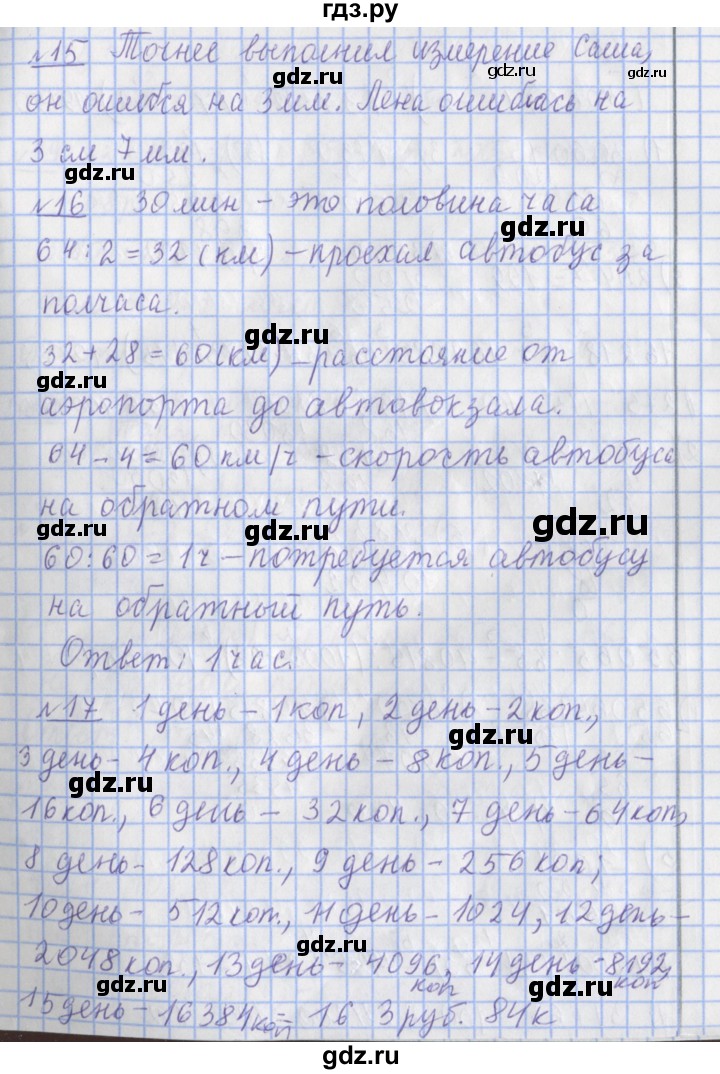 гдз.ру
№15 Точнее выполнил измерение Саша,
gdz.ru gdz.ru
он ошибся на 3 мм. Лена ошиблась на
3 см 7 мм.
gdz.ru
№16 30 мин – это половина часа
gdz.ru
64:2=32 (км) – проехал автобус за
полчаса.
gdz.ru
32+28=60(км) – расстояние от
gdz.ru
аэропорта до автовокзала.
64-4=60 км/ч – скорость автобуса
gdz.ru
на обратном пути.
gdz.ru gdz.ru
60:60=1ч – потребуется автобусу
на обратный путь.
gdz.ru
Ответ: 1 час.
gdz.ru
№17 1 день – 1 коп, 2 день – 2 коп.,
3 день – 4 коп., 4 день – 8 коп., 5 день –
gdz.ru gdz.ru
16 коп., 6 день – 32 коп., 7 день – 64 коп,
8 день – 128 коп., 9 день – 256 коп;
gdz.ru
10 день – 512 коп., 11 день – 1024, 12 день –
gdz.ru
2048 коп., 13 день – 4096, 14 день – 8192,
gdz.ru коп gdz.ru коп
15 день – 16384 коп = 16 3 руб. 84 к
gdz.ru